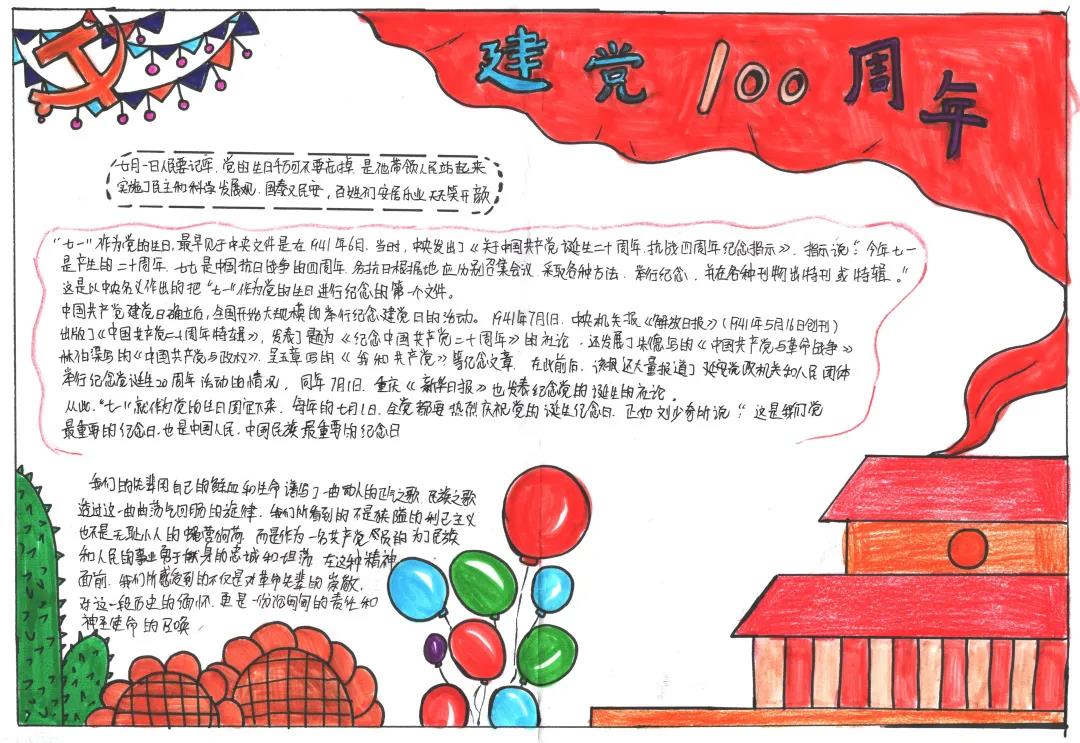 建党100周年
七月一日人民要记牢.党的生日千万不要忘掉.是他带领人民站起来
实施了民主和科学发展观.国泰又民安，百姓们安居乐业天天笑开颜
"七一"作为党的生日.最早见于中央文件是在1941年6日.当时.中央发出了《关于中国共产党诞生二十周年.抗战四周年纪念指示》.指示说："今年七一
是产生的二十周年.七七是中国抗日战争的四周年.各抗日根据地应分别召集会议.采取各种方法.举行纪念.并在各种刊物出特刊或特辑。"
这是以中央名义作出的把"七一"作为党的生日进行纪念的第一个文件。
中国共产党建党日确立后,全国开始大规模的举行纪念建党日的活动。1941年7月1日.中央机关报《解放日报》(1941年5月16日创刊)
出版了《中国共产党二十周年特辑》,发表了题为《纪念中国共产党二十周年》的社论.还发展了朱德写的《中国共产党与革命战争》
林伯渠写的《中国共产党与政权》.吴玉章写的《我和共产党》等纪念文章.在此前后.该报还大量报道了延安党政机关和人民团体
举行纪念党诞生20周年活动的情况，同年7月1日.重庆《新华日报》也发表纪念党的诞生的社论。
从此."七一"就作为党的生日固定下来.每年的七月1日.全党都要热烈庆祝党的诞生纪念日.正如刘少奇所说"这是我们党
最重要的纪念日.也是中国人民.中国民族最重要的纪念日
我们的先辈用自己的鲜血和生命谱写了一曲动人的正气之歌.民族之歌
透过这一曲曲荡气回肠的旋律.我们所看到的不是狭隘的利己主义
也不是无耻小人的蝇营狗苟.而是作为一名共产党人民的为了民族
和人民的事业勇于献身的忠诚和坦荡.在这种精神
面前.我们所感受到的不仅是对革命先辈的崇敬.
对这一段历史的缅怀.更是一份沉甸甸的责任和
神圣使命的召唤.